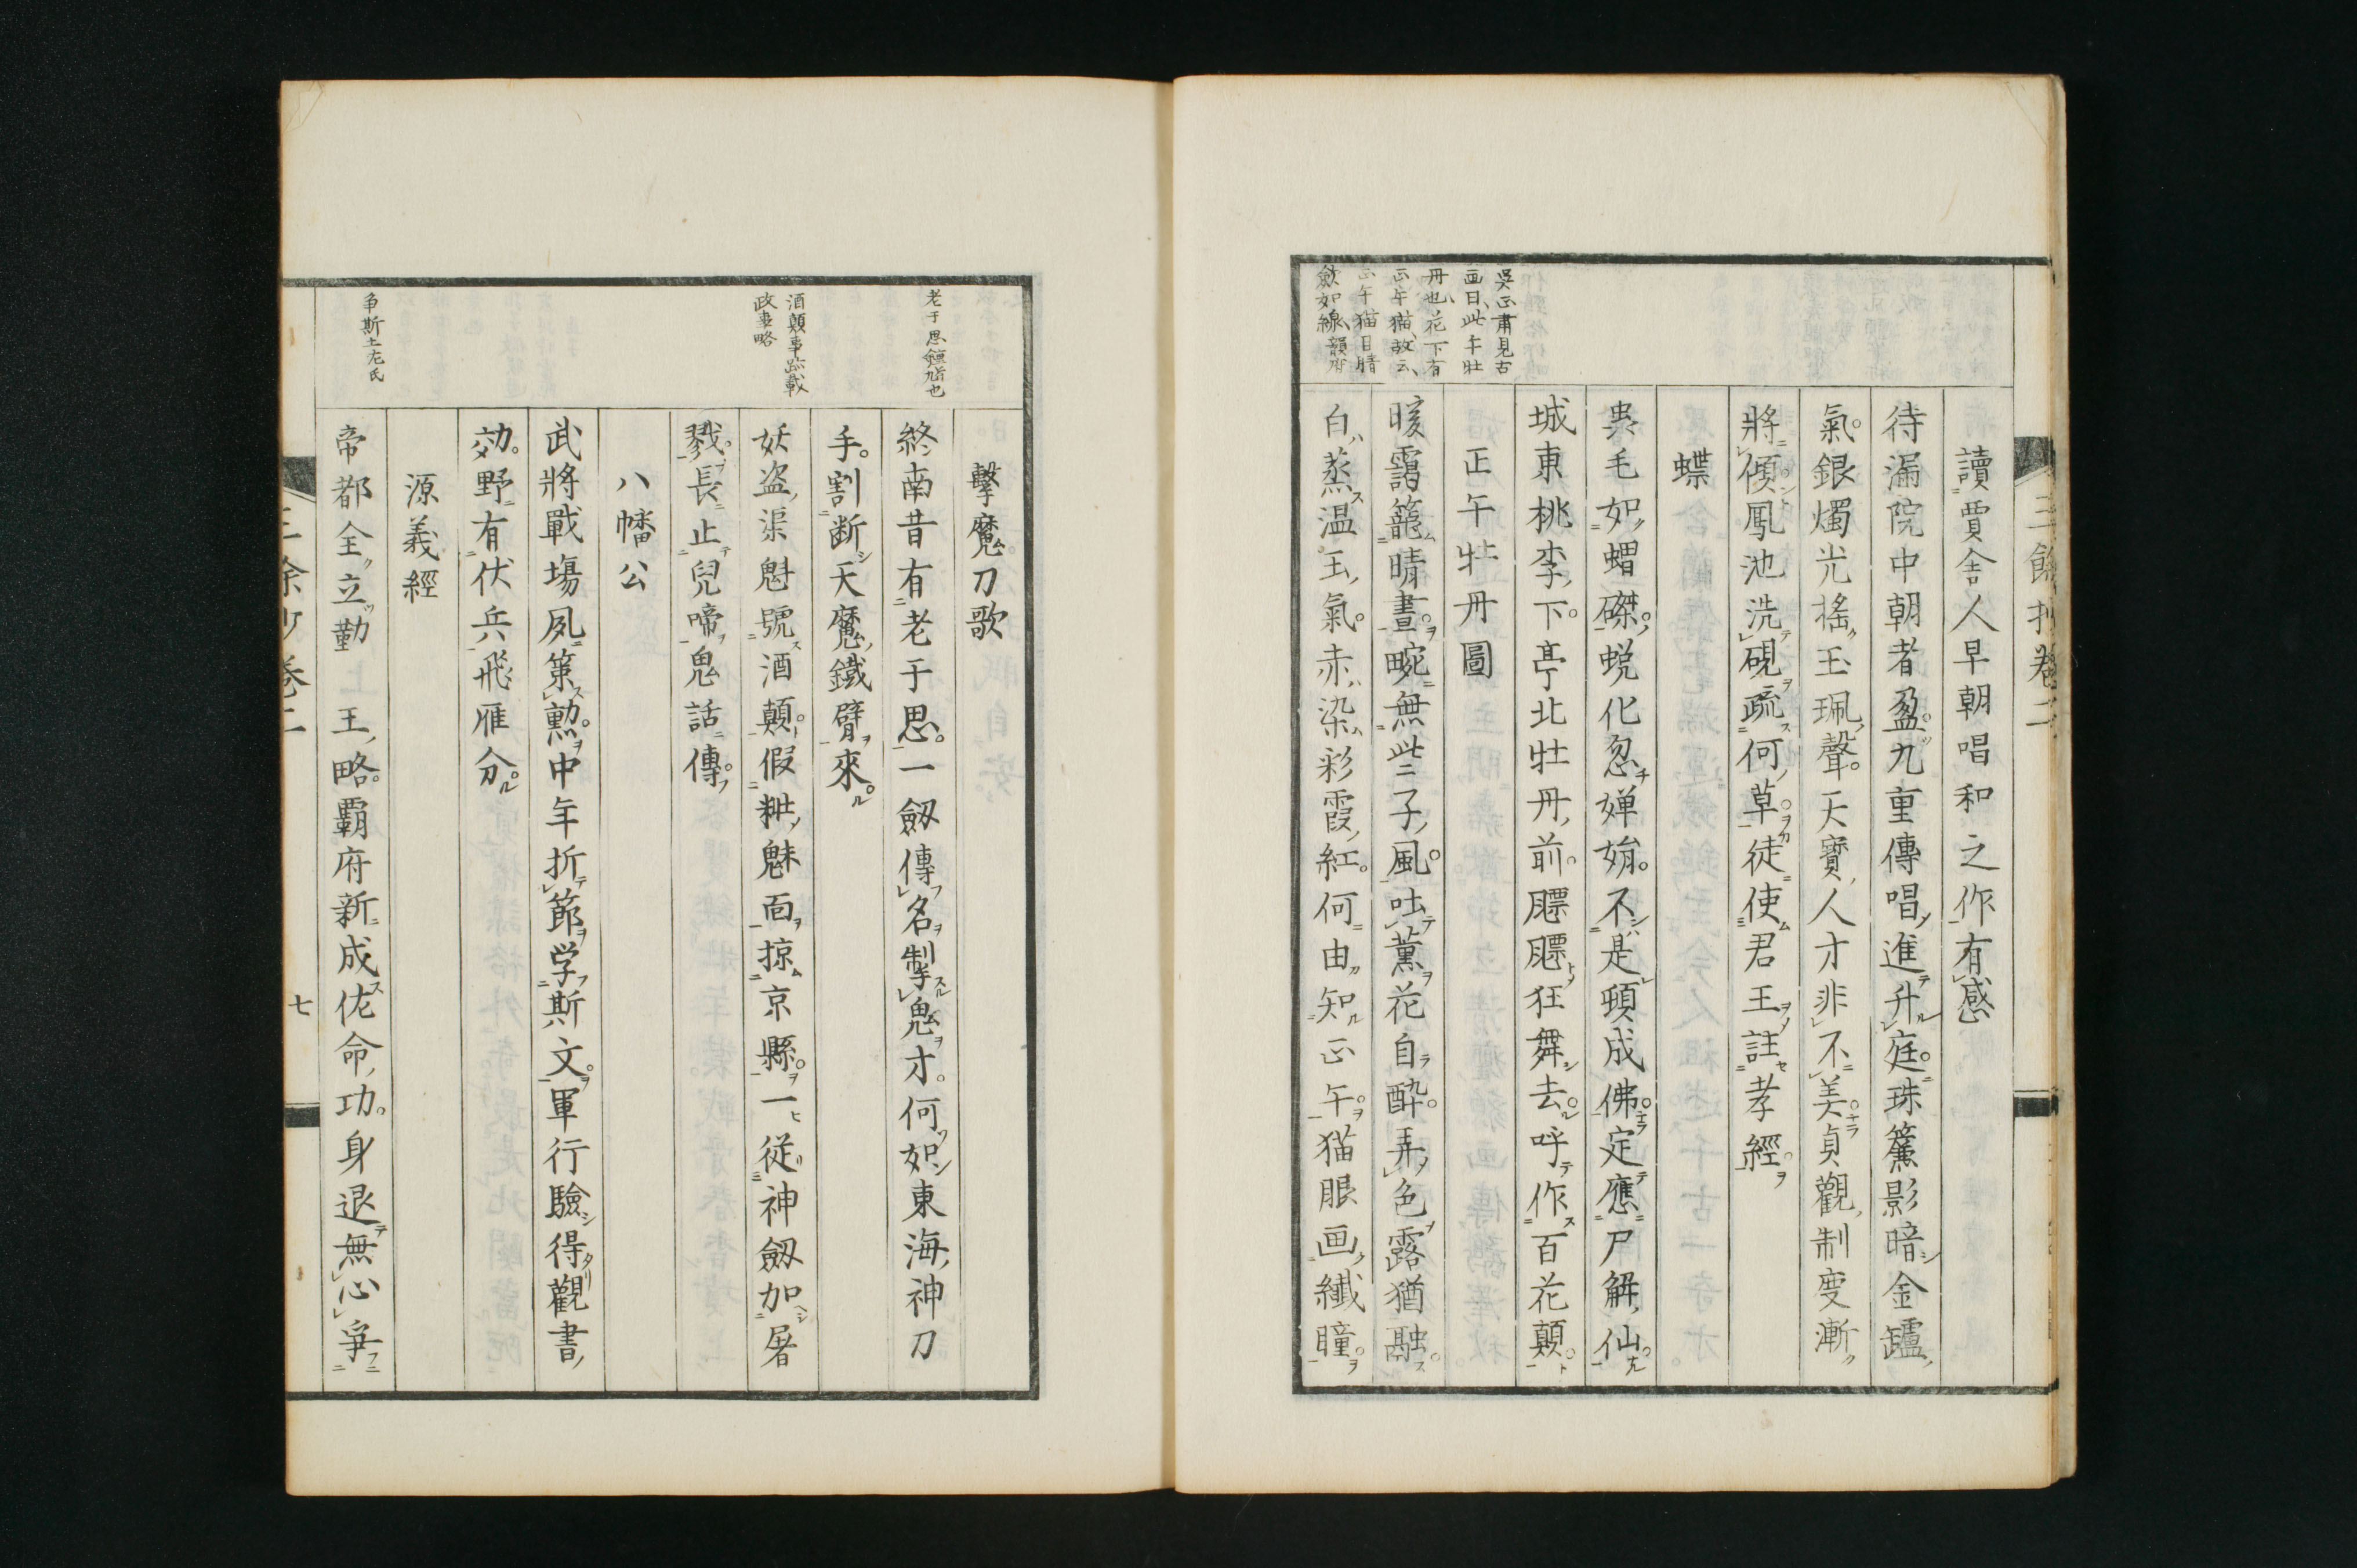 三餘抄卷二
讀賈舎人早朝唱和之作有感
待漏院中朝者盈九重傳唱進升庭珠簾影暗金鑪
氣銀燭光搖玉珮聲天寶人才非不美貞觀制度漸
將傾鳳池洗硯疏何草徒使君王註孝經
蝶
異毛如蝟磔蛻化忽嬋娟不是頓成佛定應尸解仙
城東桃李下亭北牡丹前飃飃狂舞去呼作百花顛
吳正肅見古
画曰此午牡
丹也花下有
正午猫故云
正午猫目睛
斂如線韻府
正午牡丹圖
暖靄籠晴晝畹無此二子風吐薰花自醉弄色露猶融
白蒸温玉氣赤染彩霞紅何由知正午猫眼画纖瞳
擊魔刀歌
老于思鍾馗也
終南昔有老于思一劔傳名掣鬼才何如東海神刀
手割断天魔鐵臂來
酒顛事跡載
政事略
妖盗渠魁號酒顛假粧魅面掠京縣一從神劔加屠
戮長止兒啼鬼話傳
八幡公
武將戰場夙策勲中年折節学斯文軍行驗得觀書
効野有伏兵飛雁分
源義經
争斯土左氏
帝都全立勤王略覇府新成佐命功身退無心爭
七